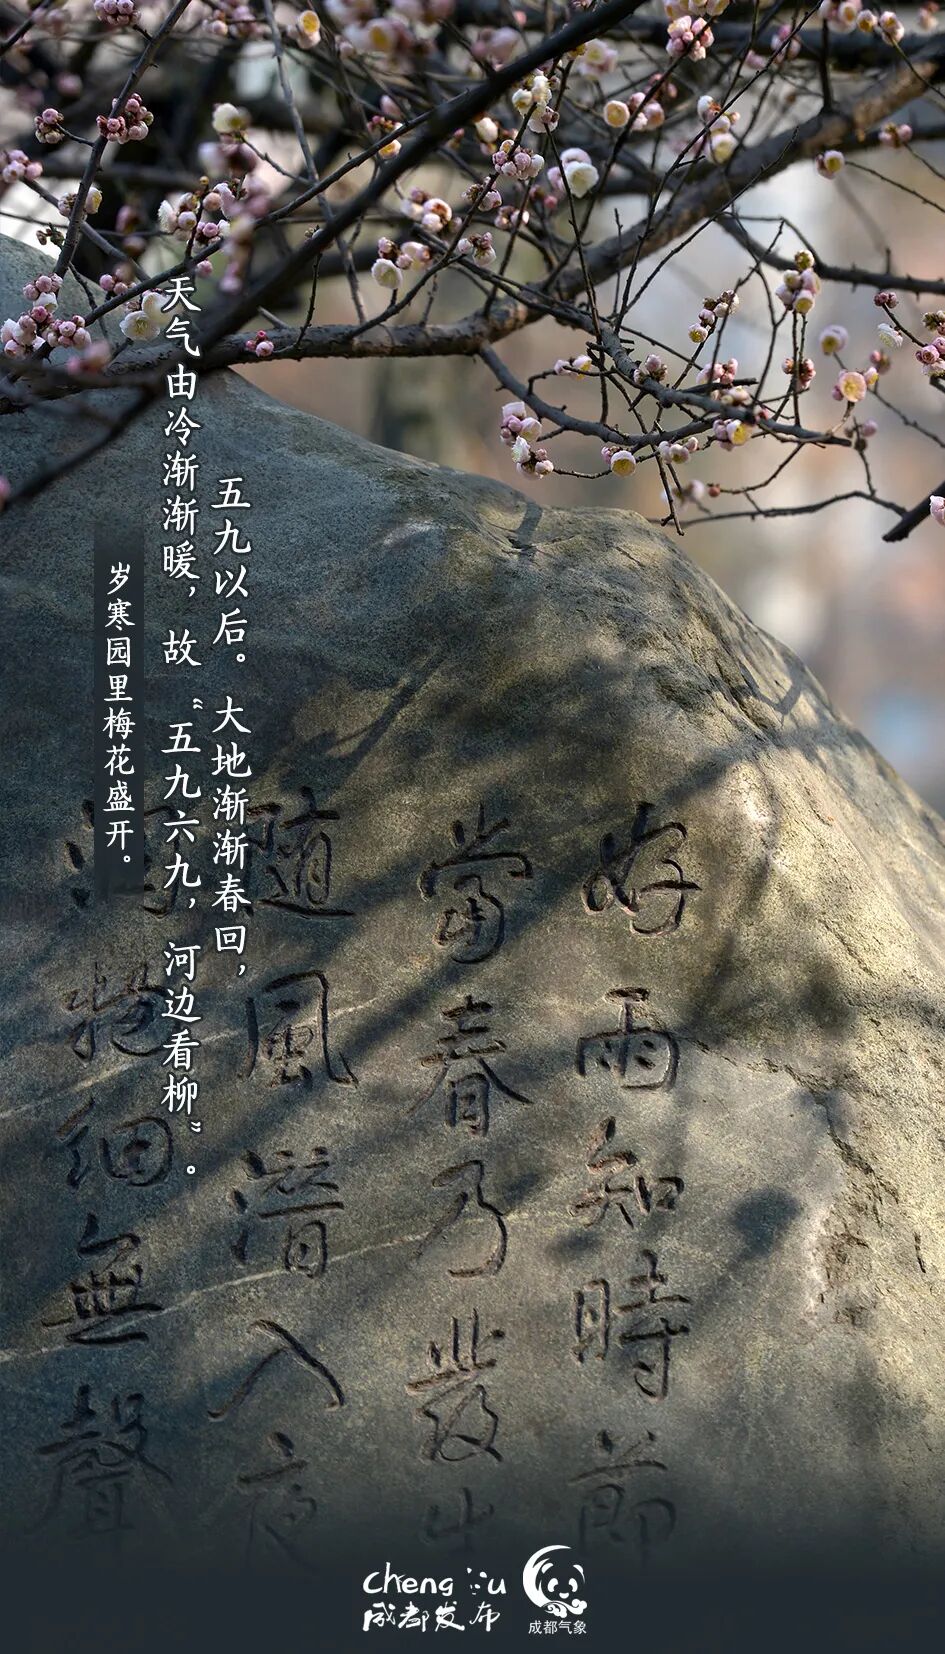 五九以后。大地渐渐春回，
天气由冷渐渐暖，故“五九六九，河边看柳”。
岁寒园里梅花盛开。
好雨知時節
當春乃發生
随風潛入夜
潤物細無聲
Cheng Du
成都发布
成都气象